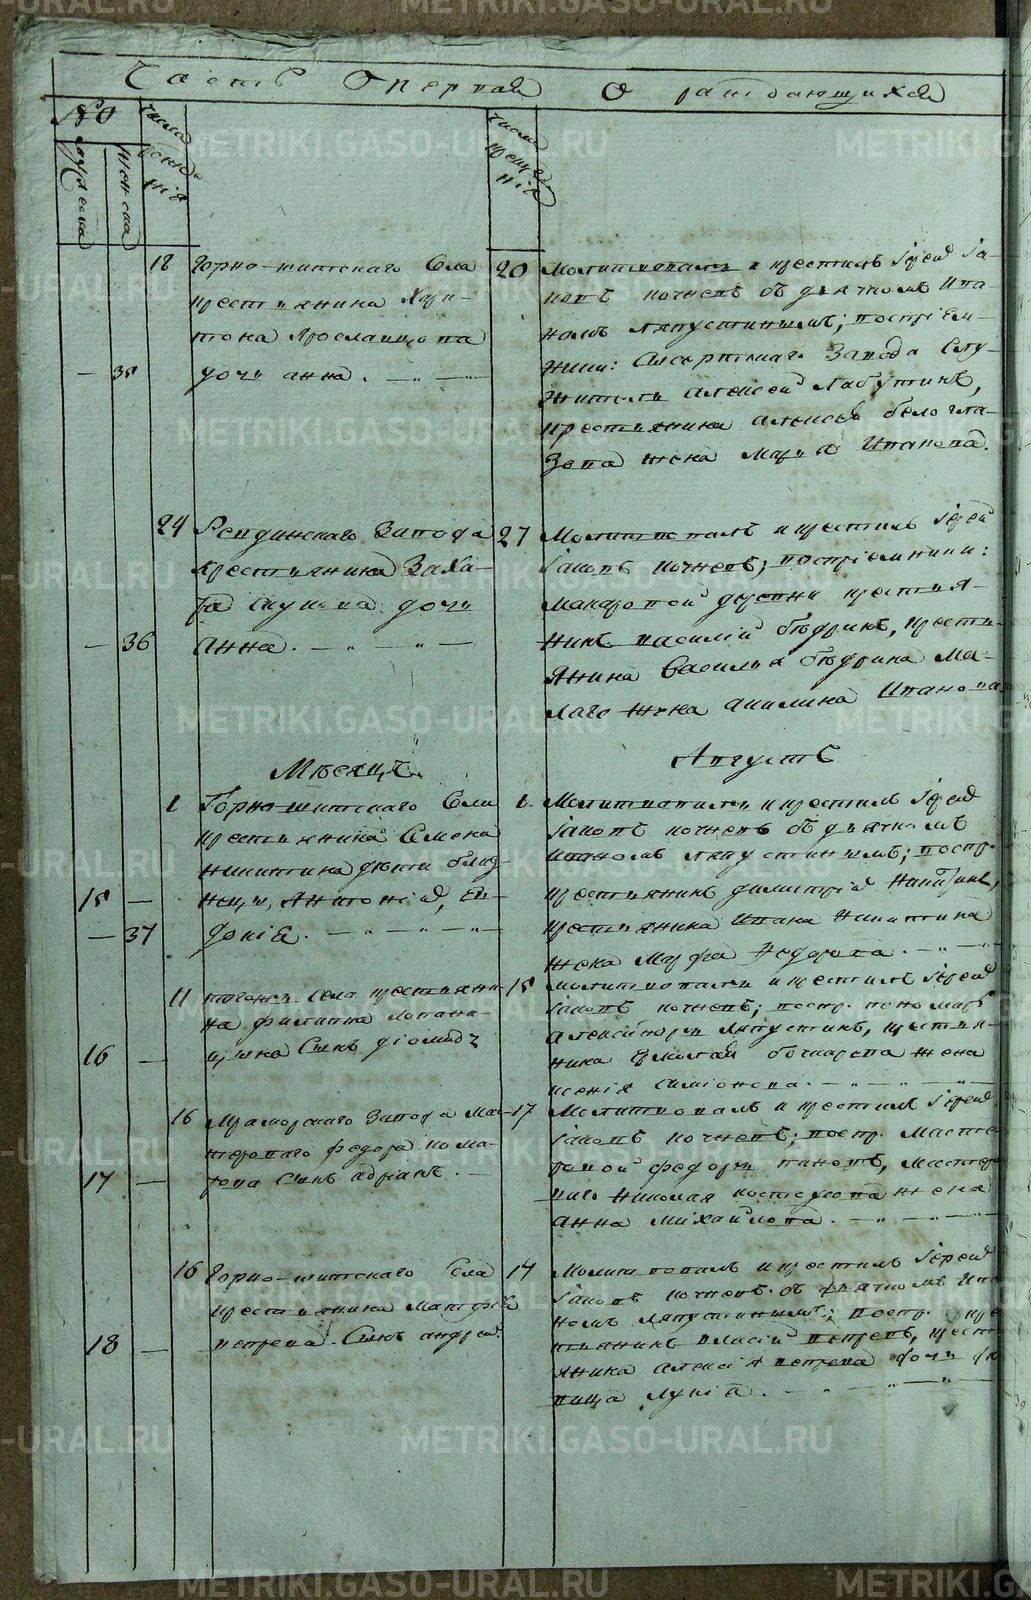 Часть Первая О раждающихся
No
мужеска
женска
числа рожде нія
числа креще нія
18 Горно-щитскаго Села
крестьянина Хари-
тона Ярославцова
— 35 дочь анна. — „ —
20 Молитвовалъ и крестилъ Іерей Іа-
ковъ Кочневъ съ дьячкомъ Ива-
номъ Ляпустинымъ; воспріем-
ники: Сысертскаго Завода Слу-
житель алексей
крестьянина алексея белогла-
зова жена Марья Иванова.
24 Ревдинскаго Завода
крестьянина Заха-
ра дочь
— 36 Анна. — „ — „ —
27 Молитвовалъ и крестилъ Іерей
Іаковъ Кочневъ; воспріемники:
Макаровой деревни крестья-
нинъ василій бѣдринъ, крестья-
янина Василья бѣдрина Ма-
лаго жена акилина Иванова
Мѣсяцъ Августъ
1 Горно-щитскаго Села
крестьянина Семена
никитина дѣти близ-
15 — нецы, Антоній, Ев-
— 37 докія. — „ — „ — „ —
Молитвовалъ и крестилъ Іерей
Іаковъ Кочневъ съ дьячкомъ
Иваномъ Ляпустинымъ; воспр.
крестьянинъ димитрій Никитинъ,
крестьянина Ивана Никитина
жена Марфа Федорова. — „ —
11 тогожъ села крестьяни-
на филиппа
16 — Сынъ діомидъ
15 Молитвовалъ и крестилъ Іерей
Іаковъ Кочневъ; воспр. пономарь
Ляпустинъ, крестья-
нина Ермолая бочкарева жена
ксенія симіонова. — „ — „ —
16 Мраморскаго Завода Мас-
тероваго федора кома-
17 — рова Сынъ адріанъ. —
17 Молитвовалъ и крестилъ Іерей
Іаковъ Кочневъ; воспр. Масте-
ровой федоръ пановъ, Мастеро-
ваго Николая жена
Анна Михайлова. — „ — „ —
16 Горно-щитскаго Села
крестьянина Матфея
18 — вепрева Сынъ андрей.
17 Молитвовалъ и крестилъ Іерей
Іаковъ Кочневъ съ дьячкомъ Ива
номъ Ляпустинымъ; воспр. кре
стьянинъ власій вепревъ, кресть
янина алексія вепрева дочь де
вица Лукія. — „ — „ —